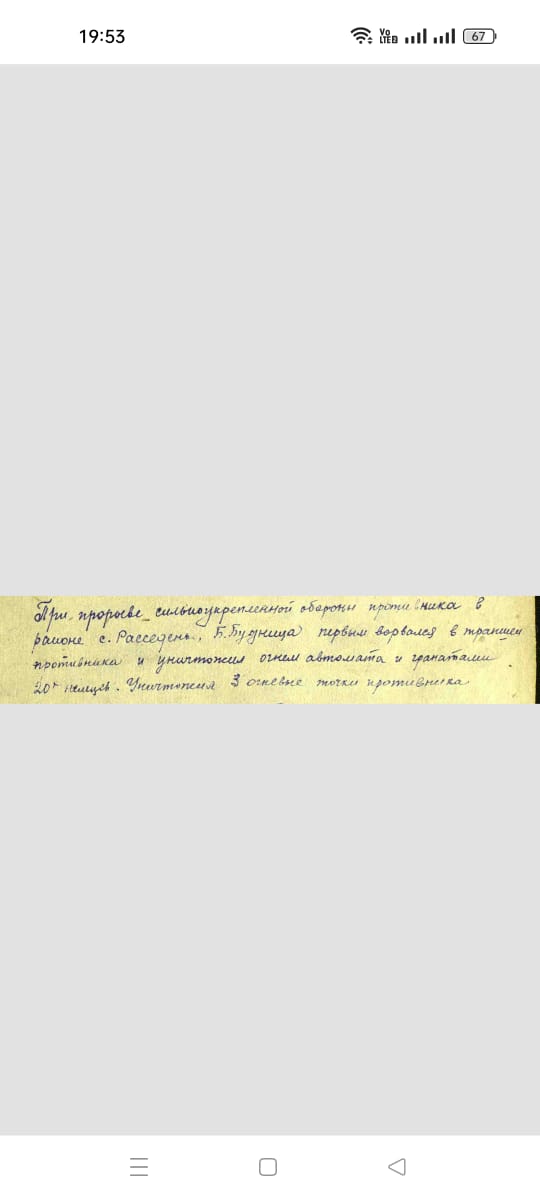 19:53
Vo
LTE 2
67
При прорыве сильноукрепленной обороны противника в
районе с. Расседень, Б.Будница первым ворвался в траншеи
противника и уничтожил огнем автомата и гранатами
20ть немцев. Уничтожил 3 огневые точки противника